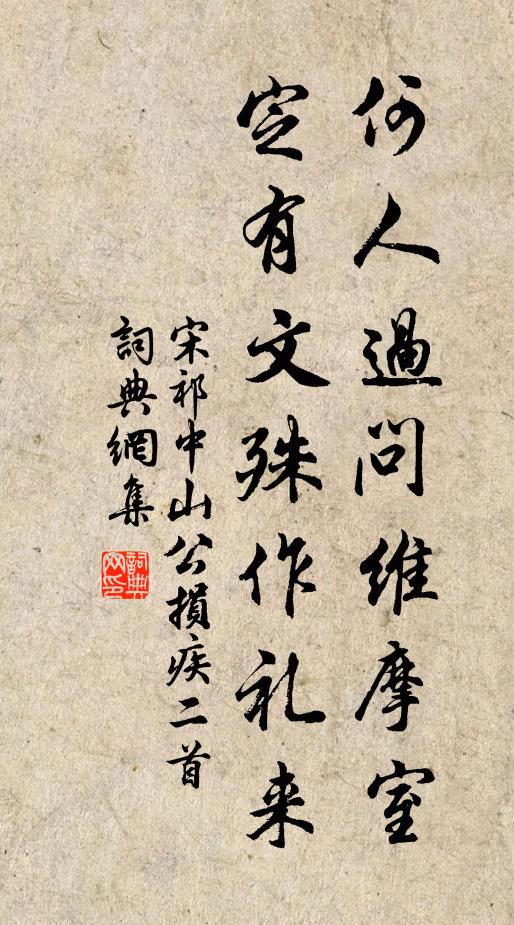 何人過問維摩室
定有文殊作礼来
宋祁中山公損疾二首
詞典網集
詞典网印